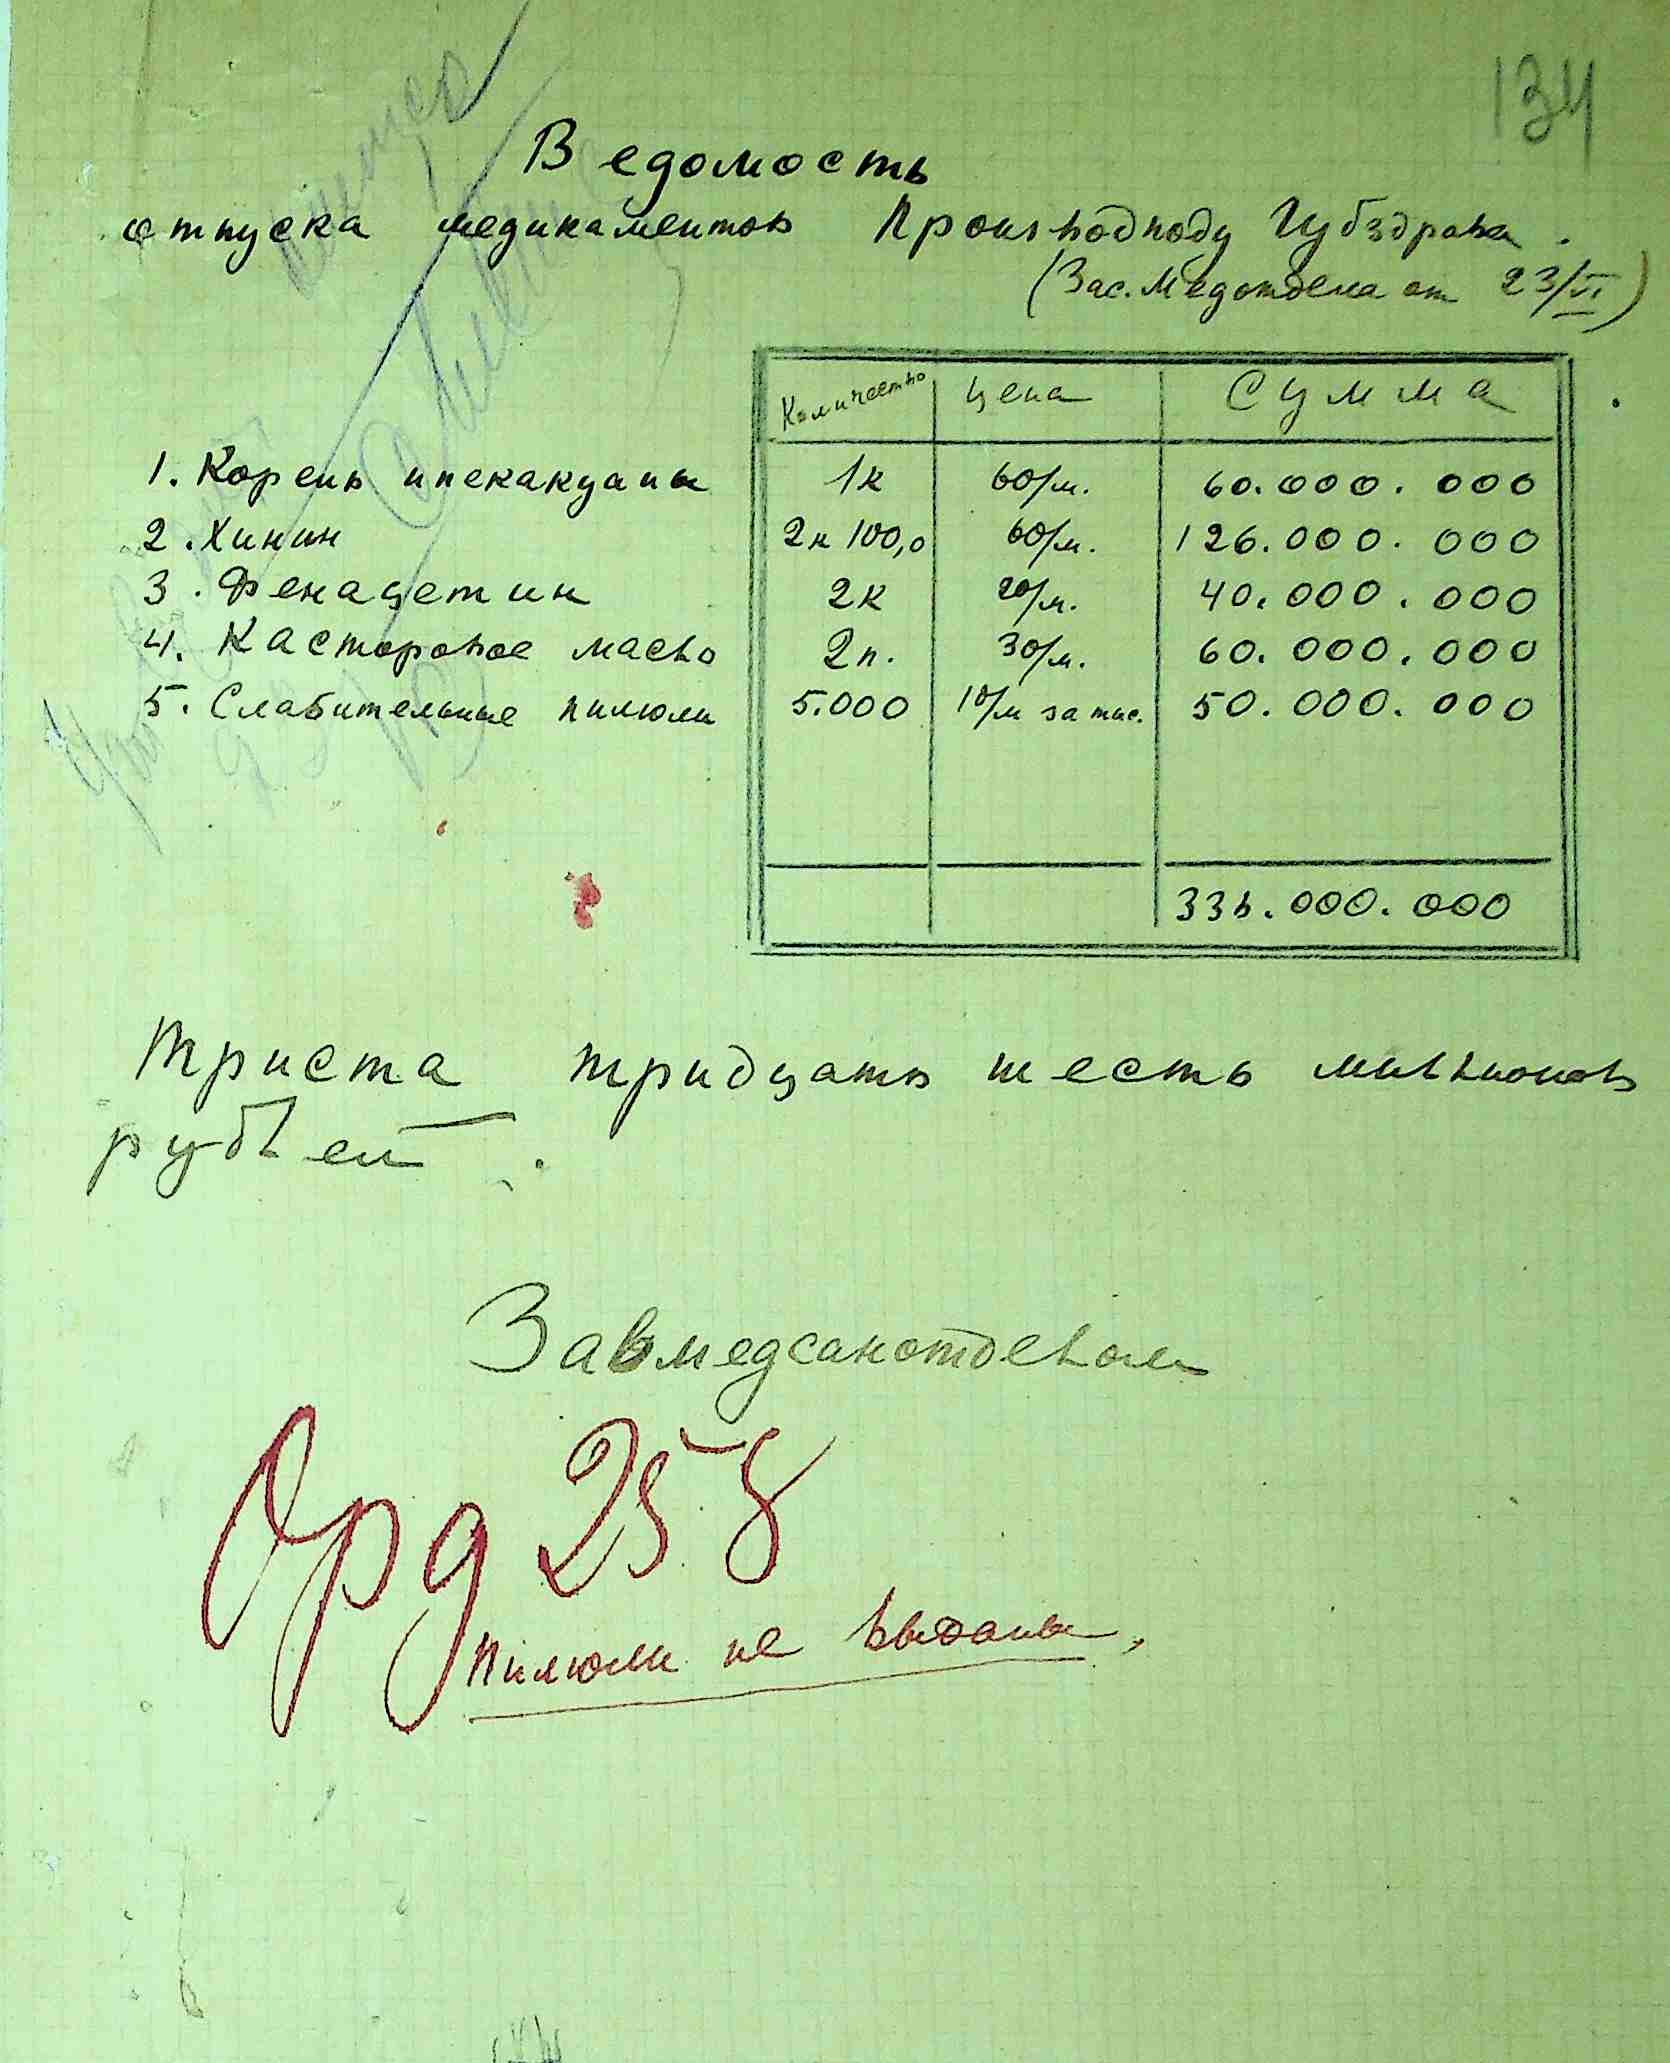 134
Ведомость
отпуска медикаментов Производподу Губздрава.
(Зас. Медотдела от 23/VI)
Количество Цена Сумма
1. Корень ипекакуаны 1к 60/м. 60.000.000
2. Хинин 2к 100,0 60/м. 126.000.000
3. Фенацетин 2к 20/м. 40.000.000
4. Касторовое масло 2п. 30/м. 60.000.000
5. Слабительные пилюли 5.000 10/м за тыс. 50.000.000
336.000.000
Триста тридцать шесть миллионов
рублей.
Завмедсанотделом
Орд 258
Пилюли не выданы,